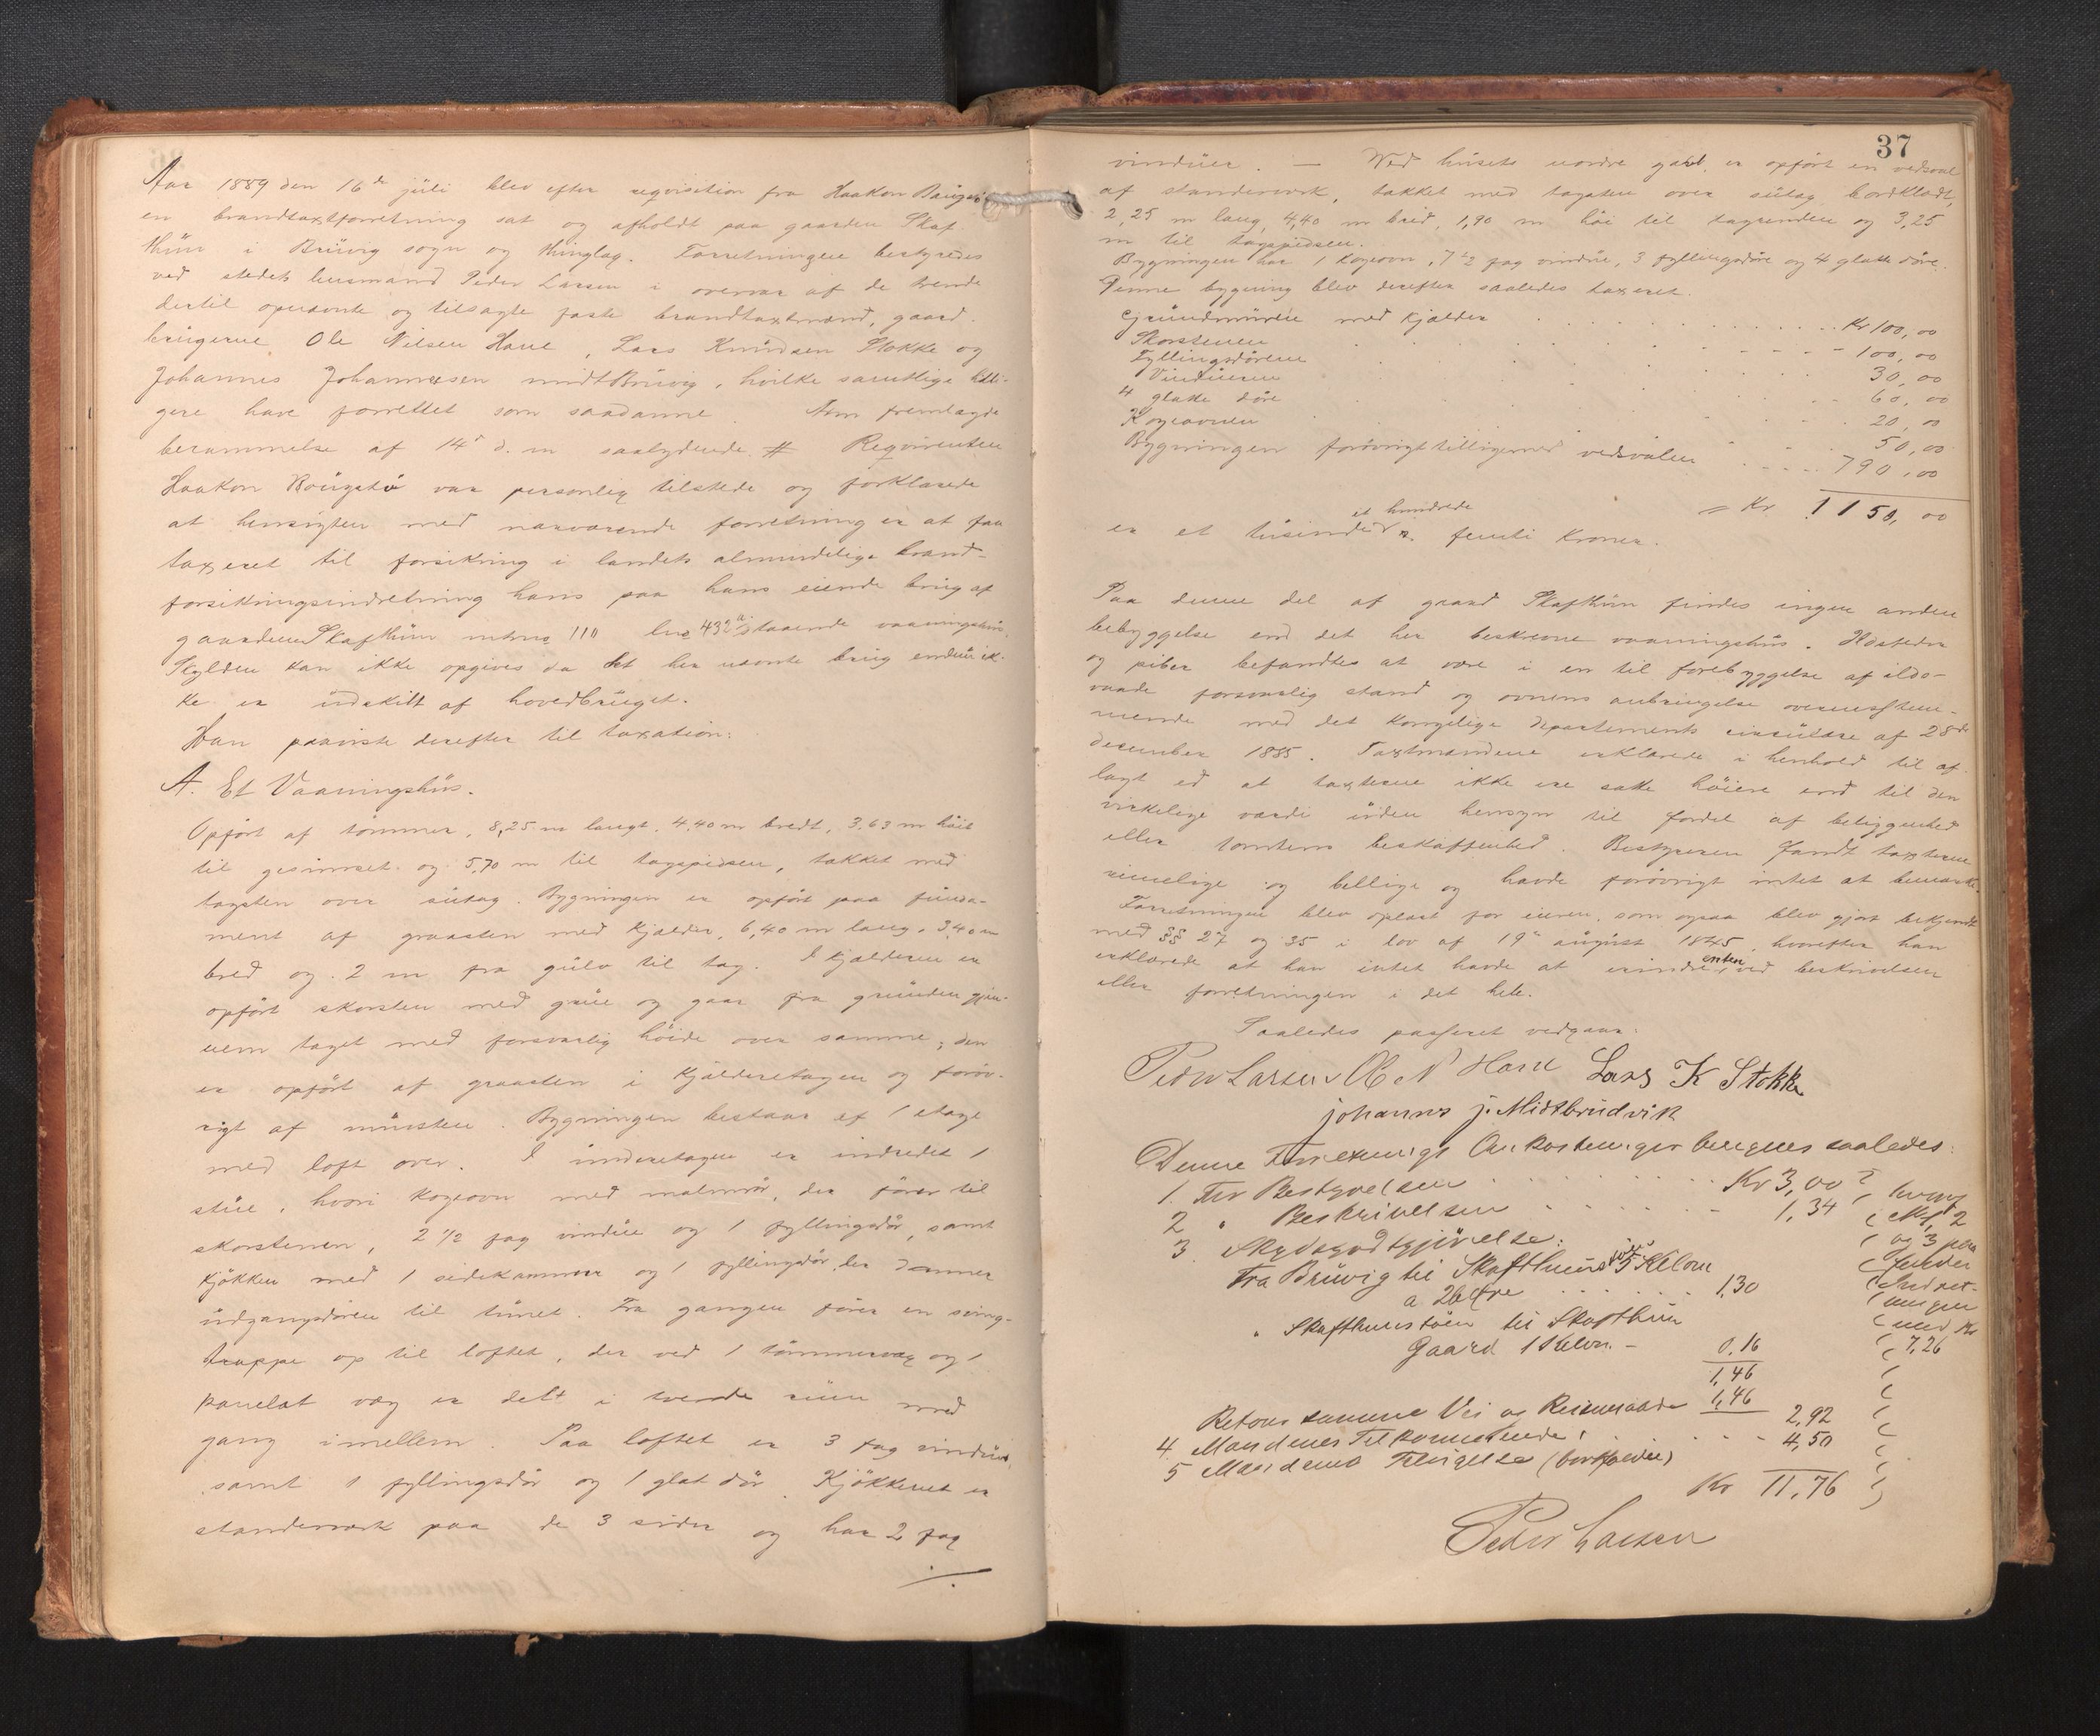 Aar 1889 den 16de jüli blev efter reqvisition fra Haakon Baügstö
en brandtaxtforretning sat og afholdt paa gaarden Skaf
thün i Brüvig sogn og thinglag. Forretningen bestyredes
ved stedets lensmand Peder Larsen i overvær af de tvende
dertil opnævnte og tilsagte faste brandtaxtmænd, gaard.
brügerne Ole Nilsen Hane, Lars Knüdsen Stokke og
Johannes Johannessen midtBrüvig, hvilke samtlige tidli-
gere have forrettet som saadanne. Man fremlagde
berammelse af 14de d. m saalydende # Reqvirenten
Haakon Böügstö var personlig tilstede og forklarede
at hensigten med nærværende forretning er at faa
taxeret til forsikring i landets almindelige brand-
forsikringsindretning hans paa hans eiende brüg af
gaarden Skafthün matrno 110 lno 432a staaende vaaningshüs.
Skylden kan ikke opgives da det her nævnte brüg endnü ik-
ke er üdskilt af hovedbrüget.
Han paaviste derefter til taxation:
A. Et Vaaningshüs.
Opført af tømmer, 8,25 m langt, 4,40 m bredt, 3,63 m høit
til gesimset og 5,70 m til tagspidsen, tækket med
tagsten over sütag. Bygningen er opført paa fünda-
ment af graasten med kjælder, 6,40 m lang, 3,40 m
bred og 2 m fra gülv til tag. I kjælderen er
opført skorsten med grüe og gaar fra gründen gjen-
nem taget med forsvarlig høide over samme; den
er opført af graasten i kjælderetagen og forøv-
rigt af mürsten. Bygningen bestaar af 1 etage
med loft over. I ünderetagen er indredet 1
stüe, hvori kogeovn med malmrør, der fører til
skorstenen, 2 1/2 fag vindüe og 1 fyllingsdør, samt
kjøkken med 1 sidekammer og 1 fyllingsdør, der danner
üdgangsdøren til tünet. Fra gangen fører en sving-
trappe op til loftet, der ved 1 tømmervæg og 1
panelet væg er delt i tvende rüm med
gang imellem. Paa loftet er 3 fag vindüe,
samt 1 fyllingsdør og 1 glat dør. Kjøkkenet er
standerverk paa de 3 sider og har 2 fag
./.
37
vindüer. — Ved hüsets nordre gavl er opført en vedsval
af standerverk, tækket med tagsten over sütag, bordklædt,
2,25 m lang, 4,40 m bred, 1,90 m høi til tagrenden og 3,25
m til tagspidsen.
Bygningen har 1 kogeovn, 7 1/2 fag vindüe, 3 fyllingsdøre og 4 glatte døre.
Denne bygning blev derefter saaledes taxeret.
Gründmüren med kjælder . . . Kr 100,00
Skorstenen . . . 100,00
Fyllingsdørene . . . 30,00
Vindüerne . . . 60,00
4 glatte døre . . . 20,00
Kogeovnen . . . 50,00
Bygningen forøvrigt tilligemed vedsvalen . . . 790,00
= Kr 1150,00
er et tüsinde et hundrede femti Kroner.
Paa denne del af gaard Skafthün findes ingen anden
bebyggelse end det her beskrevne vaaningshüs. Ildsteder
og piber befandtes at være i en til forebyggelse af ilds-
vaade forsvarlig stand og ovnens anbringelse overensstem-
mende med det kongelige departements cirkülære af 28de
december 1885. Taxtmændene erklærede i henhold til af
lagt ed at taxterne ikke ere satte høiere end til den
virkelige værdi üden hensyn til fordel af beliggenhed
eller tomtens beskaffenhed. Bestyreren fandt taxterne
rimelige og billige og havde forøvrigt intet at bemærke.
Forretningen blev oplæst for eieren, som ogsaa blev gjort bekjendt
med §§ 27 og 35 i lov af 19de aügüst 1845, hvorefter han
erklærede at han intet havde at erindre enten ved beskrivelsen
eller forretningen i det hele.
Saaledes passeret vedgaar:
Peder Larsen O N Hane Lars K Stokke
johanns j. Midtbrüdvik
Denne Forretnings Omkostninger beregnes saaledes:
1. For Bestyrelsen . . . Kr 3,00
2 " Beskrivelsen . . . 1,34
3 Skydsgodtgjørelse:
Fra Brüvig til Skafthuns 5 Kilom
a 26 Øre . . . 1,30
" Skafthunstøen til Skafthün
Gaard 1 Kilom. - 0,16
1,46
Retour samme Vei og Reisemaade 1,46 2,92
4 Mændenes Tilkommende . . . 4,50
5 Mændenes Tilsigelse (bortfalder)
Kr 11,76
hvoraf
No 1, 2
og 3 paa
falder
Indret-
ningen
med Kr
7,26
Peder Larsen